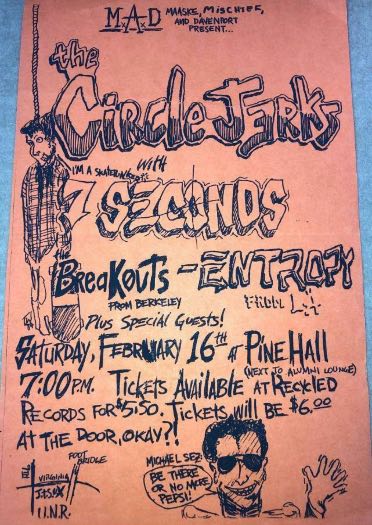 M.A.D MAASKE, MISCHIEF,
AND DAVENPORT
PRESENT...
the
CIRCLE JERKS
I'M A SKATEN
WITH
7 SECONDS
THE
BREAKOUTS - ENTROPY
FROM BERKELEY FROM L.A.
PLUS SPECIAL GUESTS!
SATURDAY, FEBRUARY 16TH AT PINE HALL
(NEXT TO ALUMNI LOUNGE)
7:00 P.M. TICKETS AVAILABLE AT RECYCLED
RECORDS FOR $5.50. TICKETS WILL BE $6.00
AT THE DOOR, OKAY?!
MICHAEL SEZ:
BE THERE
OR NO MORE
PEPSI!
FOOT
BRIDGE
7th
VIRGINIA
U.N.R.